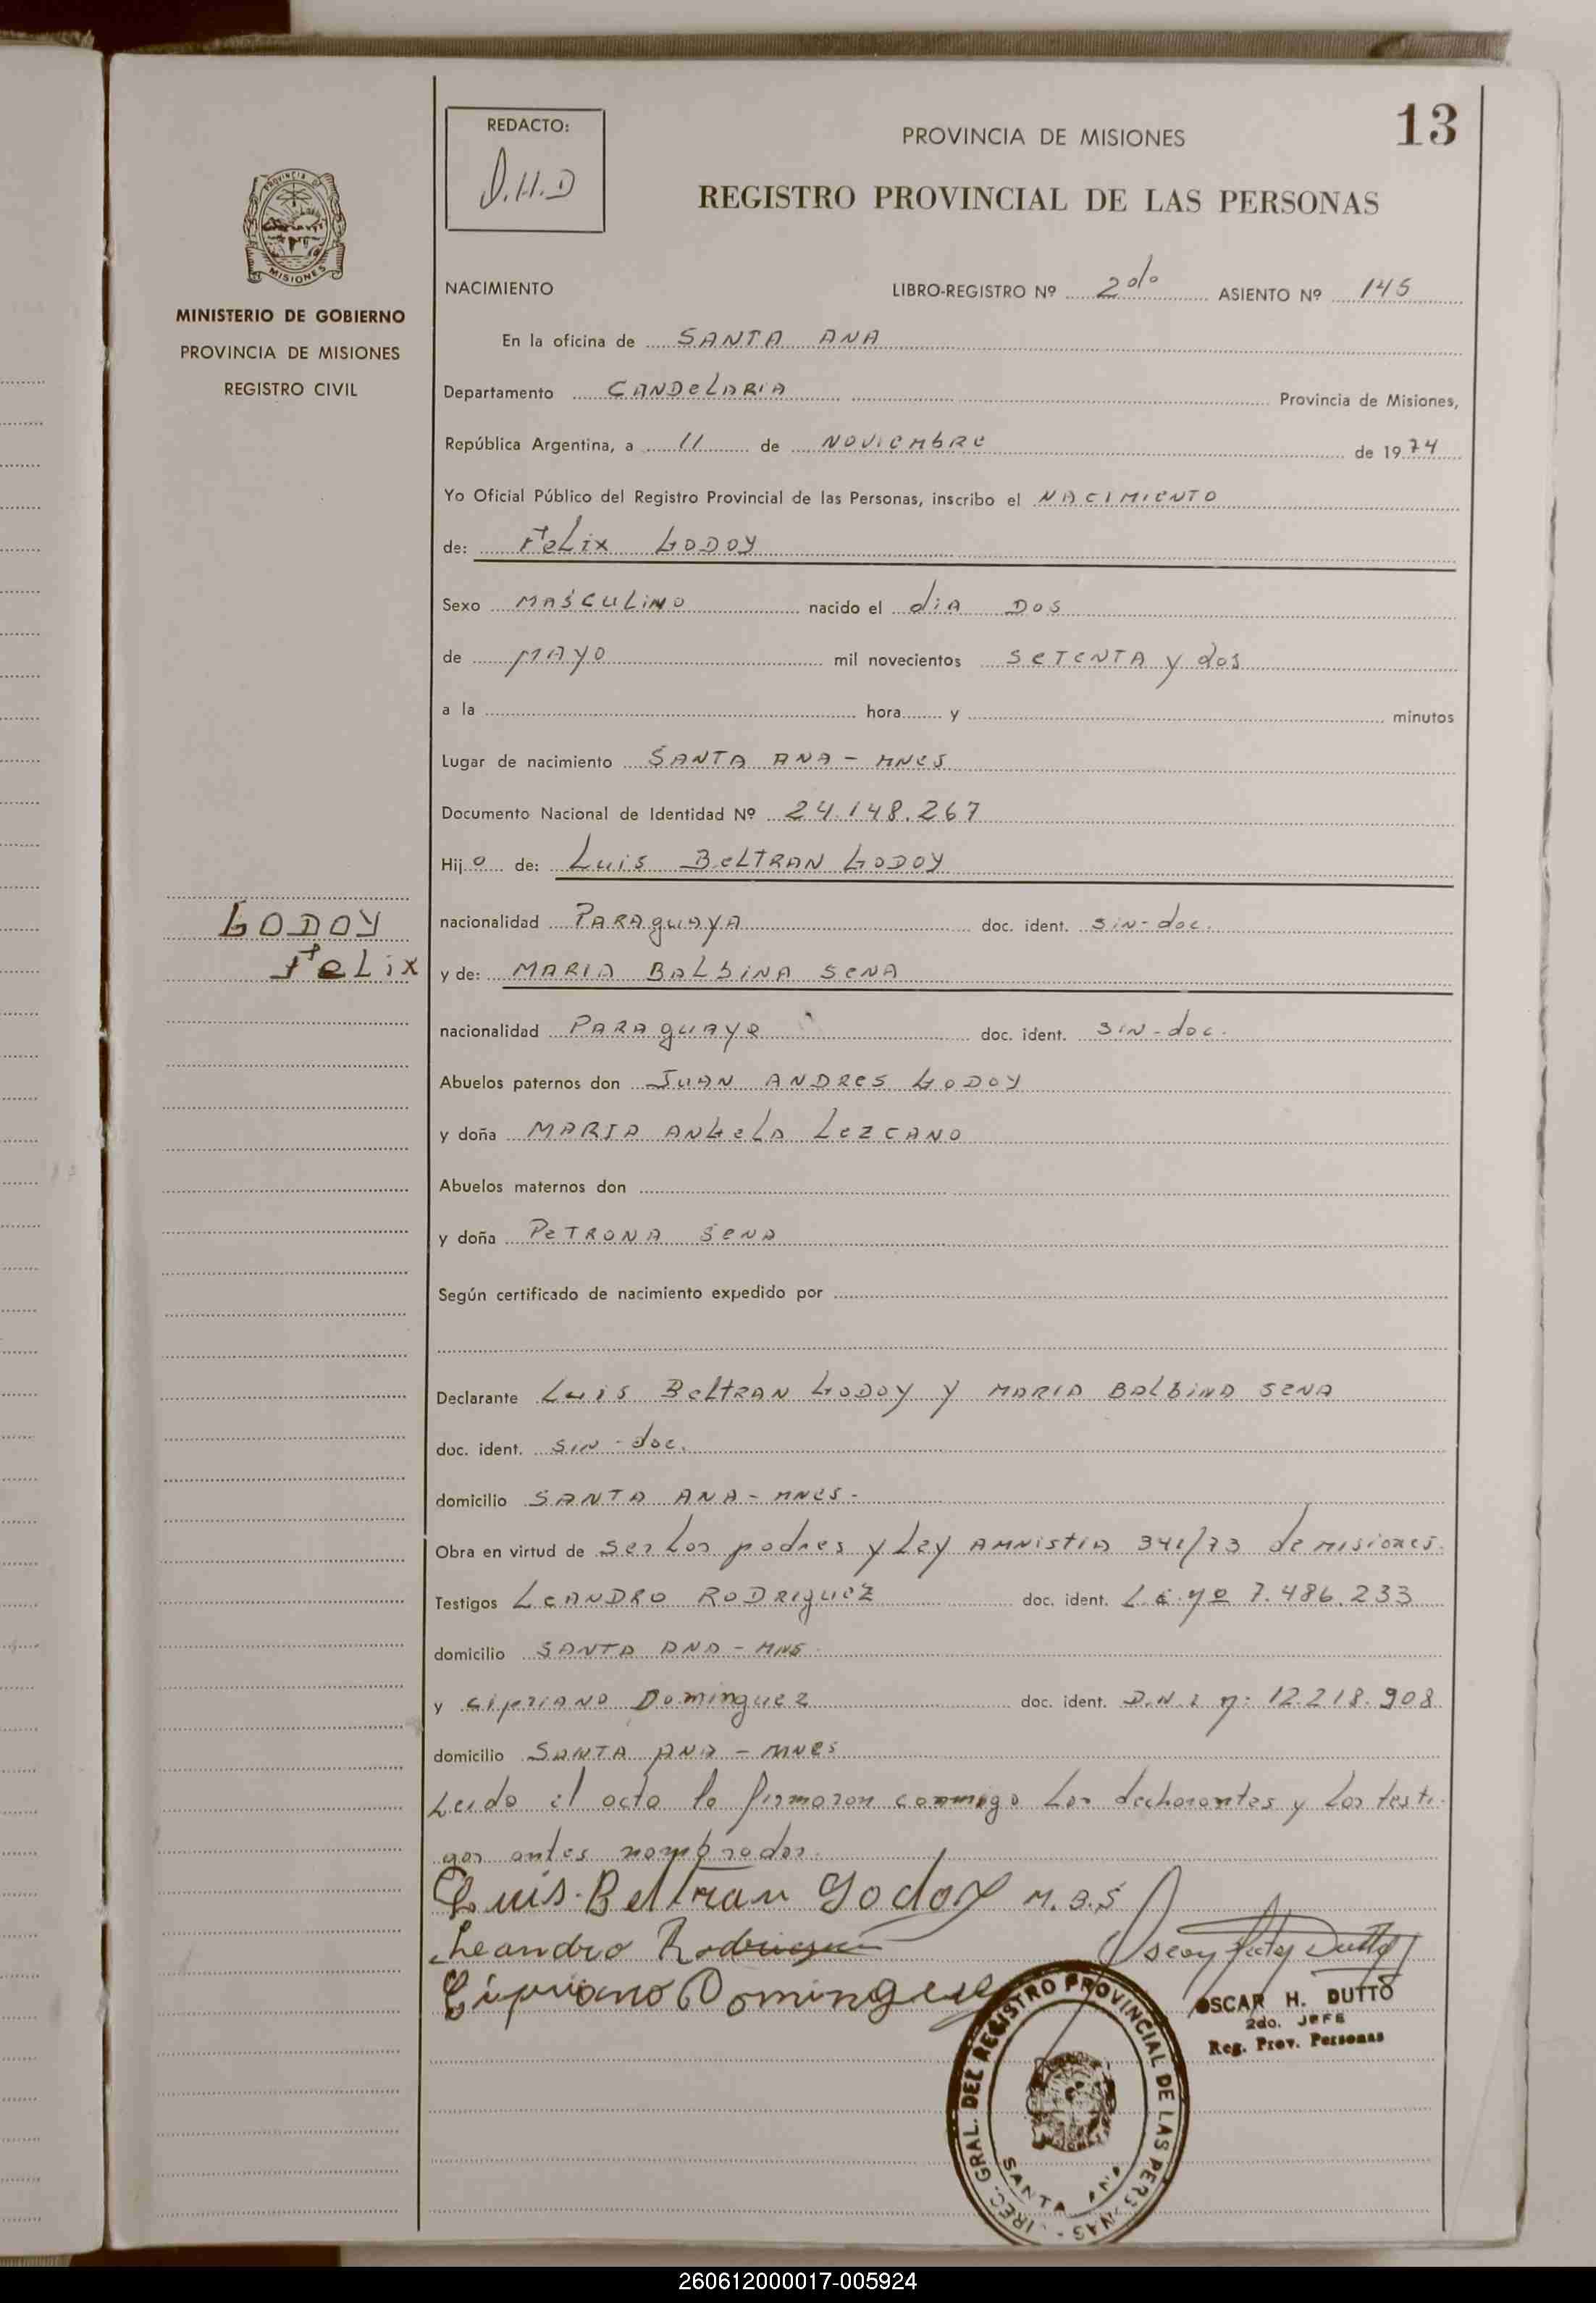 13
REDACTO:
O.H.D
PROVINCIA DE MISIONES
REGISTRO PROVINCIAL DE LAS PERSONAS
PROVINCIA DE
MISIONES
MINISTERIO DE GOBIERNO
PROVINCIA DE MISIONES
REGISTRO CIVIL
NACIMIENTO LIBRO-REGISTRO Nº 2do ASIENTO Nº 145
En la oficina de SANTA ANA
Departamento CANDeLARIA Provincia de Misiones,
República Argentina, a 11 de NOVIEMBRE de 1974
Yo Oficial Público del Registro Provincial de las Personas, inscribo el NACIMIENTO
de: FeLix GODOY
Sexo MASCULINO nacido el dIA DOS
de MAYO mil novecientos SETENTA y dos
a la hora y minutos
Lugar de nacimiento SANTA ANA - MNES
Documento Nacional de Identidad Nº 24.148.267
Hijo de: Luis BeLTRAN GODOY
nacionalidad PARAguAYA doc. ident. SiN-doc.
GODOY
FeLix
y de: MARIA BALBINA SeNA
nacionalidad PARAguAYA doc. ident. SIN-doc.
Abuelos paternos don JUAN ANDRES GODOY
y doña MARIA ANGELA LEZCANO
Abuelos maternos don
y doña PETRONA SeNA
Según certificado de nacimiento expedido por
Declarante Luis BeltRAN GODOY y MARIA BALBINA SENA
doc. ident. SIN-doc.
domicilio SANTA ANA - MNES.
Obra en virtud de ser Los padres y Ley AMNISTIA 341/73 de MISIONES.
Testigos LEANDRO RODRIGUEZ doc. ident. 7.486.233
domicilio SANTA ANA - MNS
y CIPRIANO Dominguez doc. ident. D.N.I nº 12.218.908
domicilio SANTA ANA - MNES
Leido el acta la firmaron conmigo Los declarantes y Los testi-
gos antes nombrados.
Luis Beltran Godoy M.B.S
Leandro Rodriguez
Cipriano Dominguez
OSCAR H. DUTTO
2do. JEFE
Reg. Prov. Personas
DIREC. GRAL. DEL REGISTRO PROVINCIAL DE LAS PERSONAS
SANTA ANA
260612000017-005924